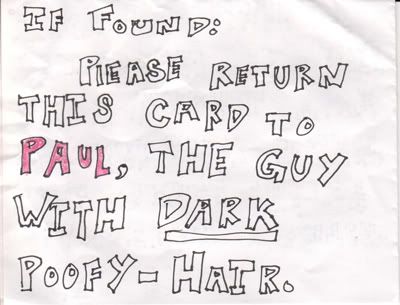 IF FOUND:
PLEASE RETURN
THIS CARD TO
PAUL, THE GUY
WITH DARK
POOFY-HAIR.